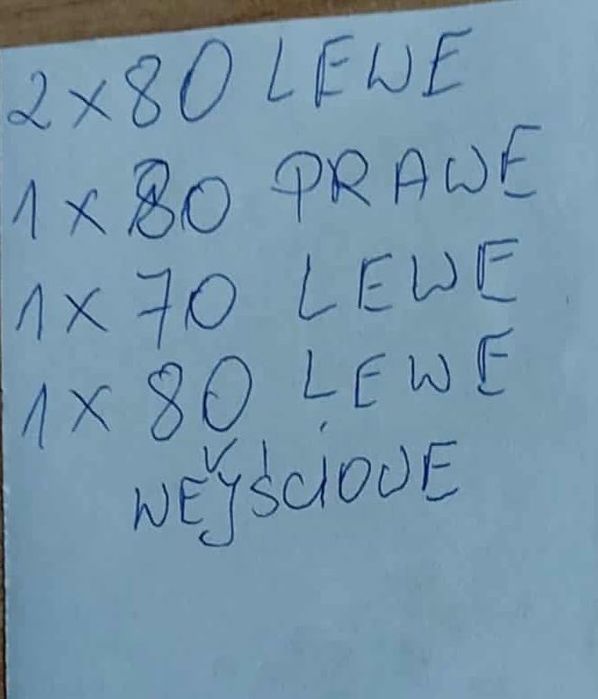 2 x 80 LEWE
1 x 80 PRAWE
1 x 70 LEWE
1 x 80 LEWE
WEJŚCIOWE